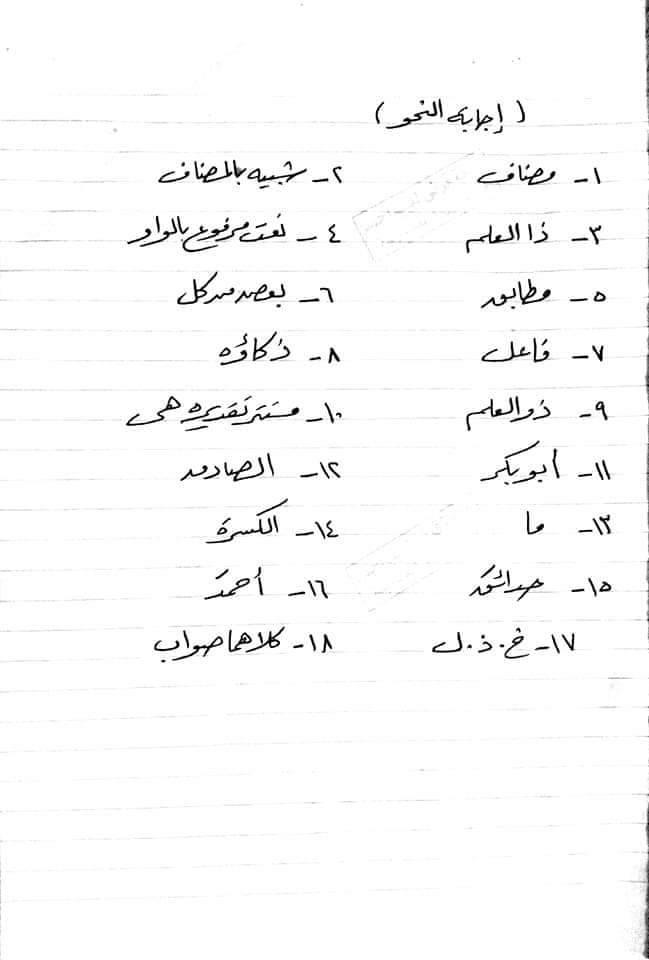 (إجابة النحو)
١- مضاف ٢- شبيه بالمضاف
٣- ذا العلم ٤- نعت مرفوع بالواو
٥- مطابق ٦- بعض من كل
٧- فاعل ٨- ذكاؤه
٩- ذو العلم ١٠- مستتر تقديره هى
١١- أبو بكر ١٢- الصادق
١٣- ما ١٤- الكسرة
١٥- حدائق ١٦- أحمد
١٧- خ.ذ.ل ١٨- كلاهما صواب